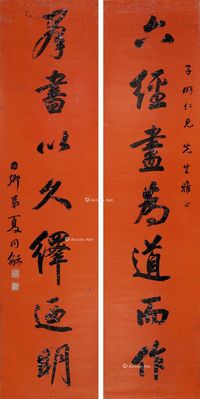 子明仁兄先生雅正
六經盡爲道而作
羣書以久繹迺明
同鄉弟夏同龢